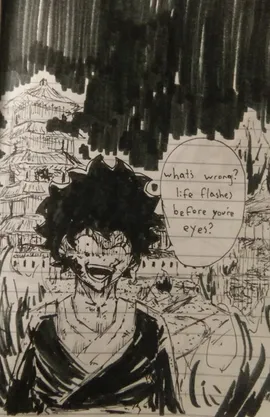 whats wrong?
life flashes
before you're
eyes?